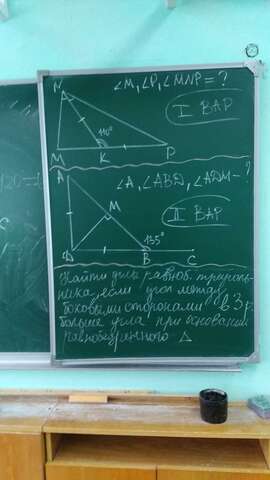 ∠M, ∠P, ∠MNP = ?
N
I ВАР
110°
M K P
∠A, ∠ABD, ∠ADM - ?
A
M
II ВАР
135°
D B C
Найти углы равноб. треуголь-
ника, если угол между
боковыми сторонами в 3 р.
больше угла при основании
равнобедренного Δ